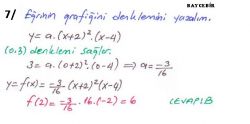 BAY CEBİR
7/ Eğrinin grafiğini denklemini yazalım.
y = a.(x+2)².(x-4)
(0,3) denklemi sağlar.
3 = a.(0+2)².(0-4) ⇒ a = -3/16
y = f(x) = -3/16 (x+2)²(x-4)
f(2) = -3/16 . 16.(-2) = 6 CEVAP B